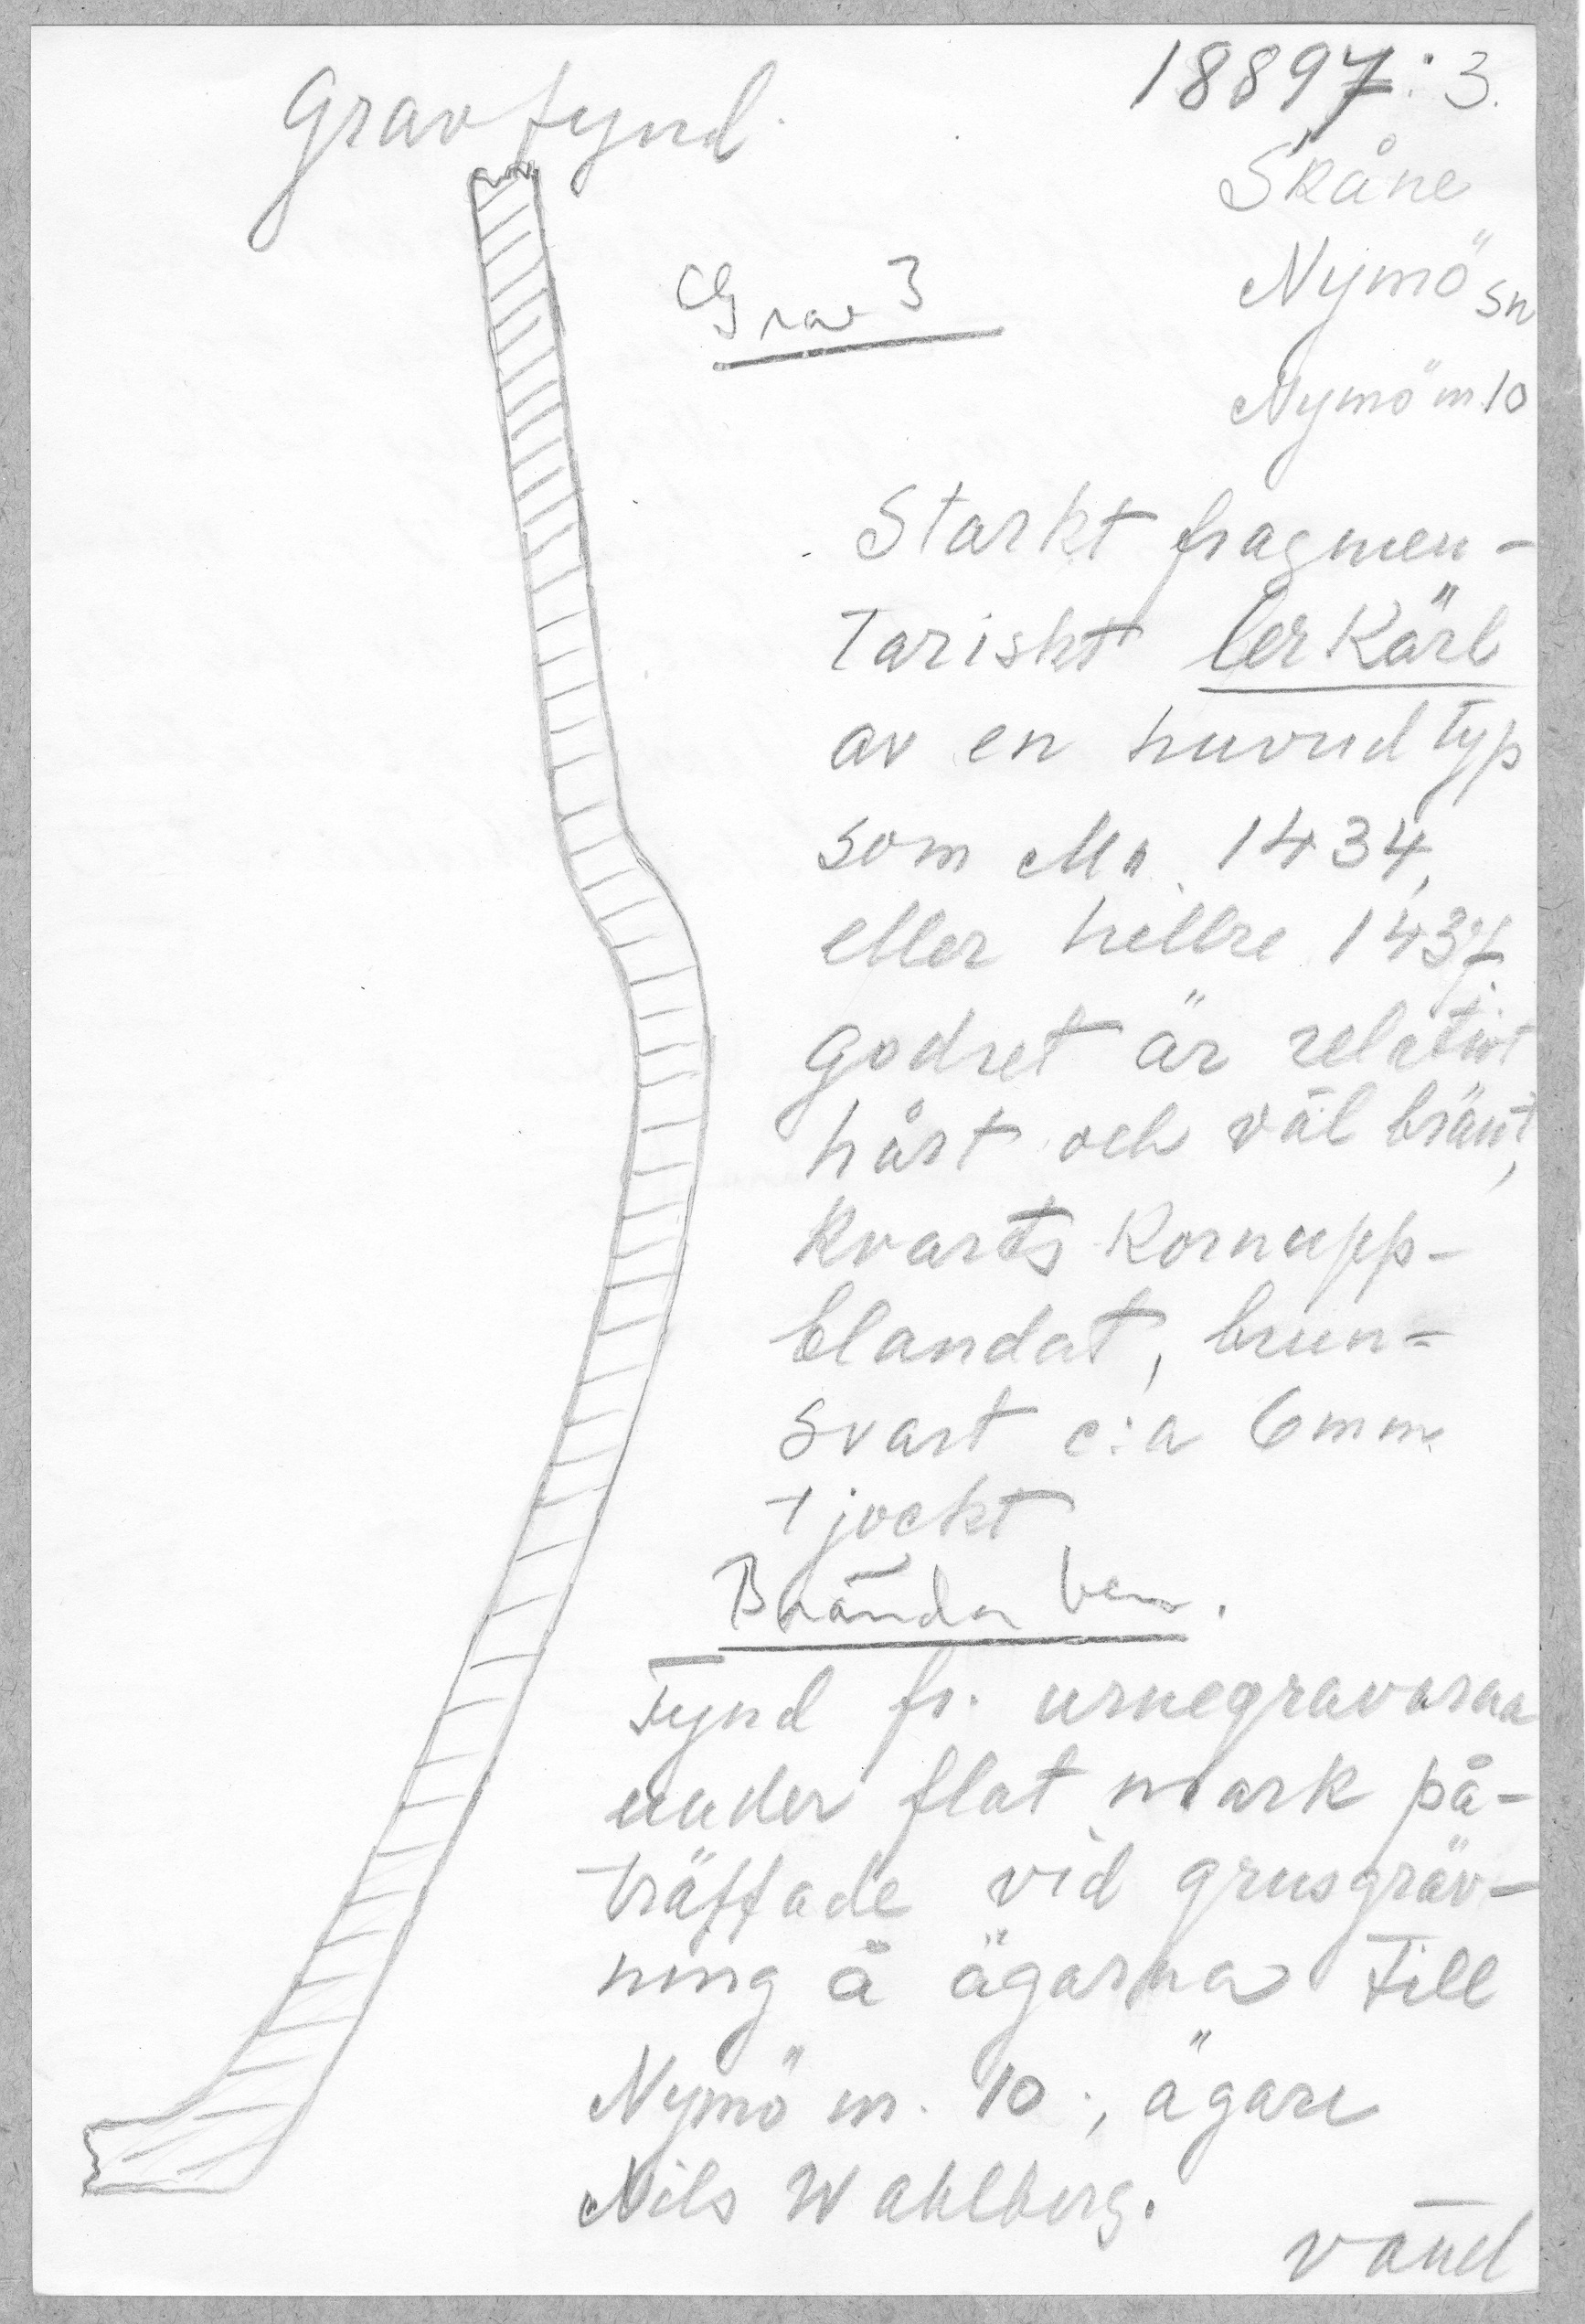 Gravfynd.
18897:3.
Skåne
Nymö sn
Nymö nr 10
Grav 3
Starkt fragmen-
tariskt lerkärl
av en huvudtyp
som Mn. 1434,
eller hellre 1437.
godset är relativt
hårt och väl bränt,
kvartskornupp-
blandat, brun-
svart c:a 6 mm
tjockt
Brända ben.
Fynd fr. urnegravarna
under flat mark på-
träffade vid grusgräv-
ning å ägarna till
Nymö nr. 10., ägare
Nils Wahlberg.
vänd